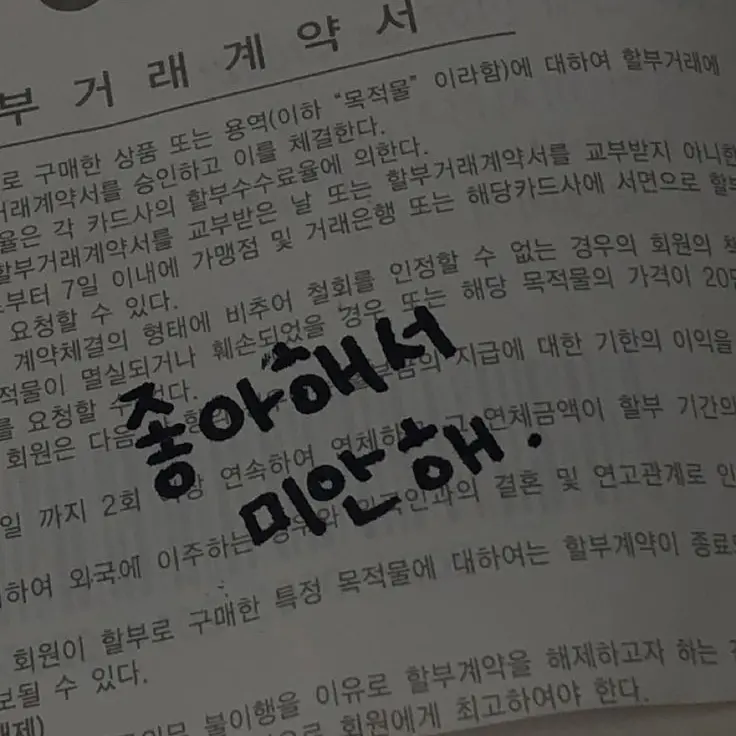 부 거 래 계 약 서
로 구매한 상품 또는 용역(이하 “목적물” 이라함)에 대하여 할부거래에
거래계약서를 승인하고 이를 체결한다.
율은 각 카드사의 할부수수료율에 의한다.
할부거래계약서를 교부받은 날 또는 할부거래계약서를 교부받지 아니한
부터 7일 이내에 가맹점 및 거래은행 또는 해당카드사에 서면으로 할부
요청할 수 있다.
계약체결의 형태에 비추어 철회를 인정할 수 없는 경우의 회원의 책
적물이 멸실되거나 훼손되었을 경우 또는 해당 목적물의 가격이 20만
를 요청할 수 없다.
회원은 다음 할부금의 지급에 대한 기한의 이익을
좋아해서
미안해.
일 까지 2회 이상 연속하여 연체하고 그 연체금액이 할부 기간의
하여 외국에 이주하는 경우와 외국인과의 결혼 및 연고관계로 인
회원이 할부로 구매한 특정 목적물에 대하여는 할부계약이 종료
보될 수 있다.
해제)
불이행을 이유로 할부계약을 해제하고자 하는
회원에게 최고하여야 한다.